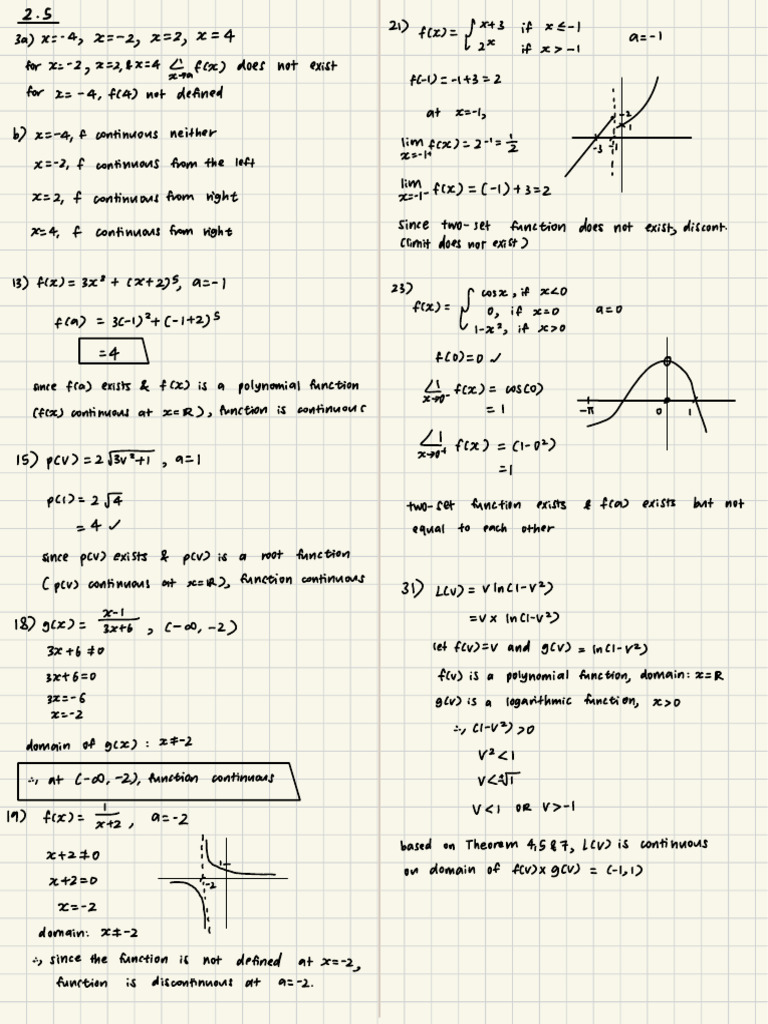 2.5
3a) x=-4, x=-2, x=2, x=4
for x=-2, x=2, & x=4 lim x→a f(x) does not exist
for x=-4, f(4) not defined
b) x=-4, f continuous neither
x=-2, f continuous from the left
x=2, f continuous from right
x=4, f continuous from right
13) f(x) = 3x² + (x+2)⁵, a=-1
f(a) = 3(-1)² + (-1+2)⁵
= 4
since f(a) exists & f(x) is a polynomial function
(f(x) continuous at x=ℝ), function is continuous
15) p(v) = 2√(3v²+1), a=1
p(1) = 2√4
= 4 ✓
since p(v) exists & p(v) is a root function
(p(v) continuous at x=ℝ), function continuous
18) g(x) = (x-1)/(3x+6), (-∞, -2)
3x+6≠0
3x+6=0
3x=-6
x=-2
domain of g(x): x≠-2
∴, at (-∞, -2), function continuous
19) f(x) = 1/(x+2), a=-2
x+2≠0
x+2=0
x=-2
domain: x≠-2
1
-2
∴, since the function is not defined at x=-2,
function is discontinuous at a=-2.
21) f(x) = { x+3 if x≤-1
2ˣ if x>-1
a=-1
f(-1) = -1+3 = 2
at x=-1,
lim x=-1⁺ f(x) = 2⁻¹ = 1/2
lim x=-1⁻ f(x) = (-1)+3 = 2
-2
1
-3 -1
since two-set function does not exist, discont.
(limit does not exist)
23)
f(x) = { cosx, if x<0
0, if x=0
1-x², if x>0
a=0
f(0)=0 ✓
lim x→0⁻ f(x) = cos(0)
= 1
lim x→0⁺ f(x) = (1-0²)
= 1
-π 0 1
two-set function exists & f(a) exists but not
equal to each other
31) L(v) = v ln(1-v²)
= v x ln(1-v²)
let f(v)=v and g(v) = ln(1-v²)
f(v) is a polynomial function, domain: x=ℝ
g(v) is a logarithmic function, x>0
∴, (1-v²)>0
v²<1
v<²√1
v<1 OR v>-1
based on Theorem 4, 5 & 7, L(v) is continuous
on domain of f(v) x g(v) = (-1,1)